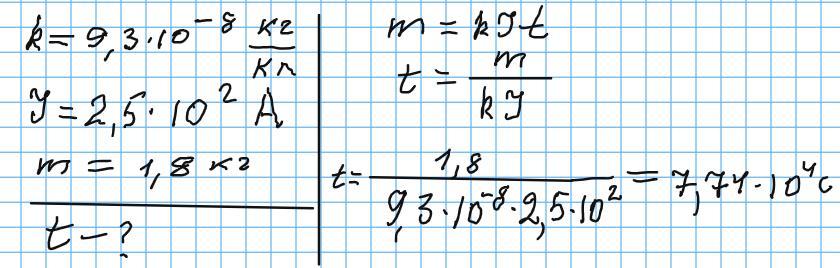 k = 9,3·10⁻⁸ кг/Кл
J = 2,5·10² А
m = 1,8 кг
t - ?
m = kJt
t = m/kJ
t = 1,8/9,3·10⁻⁸·2,5·10² = 7,74·10⁴ с